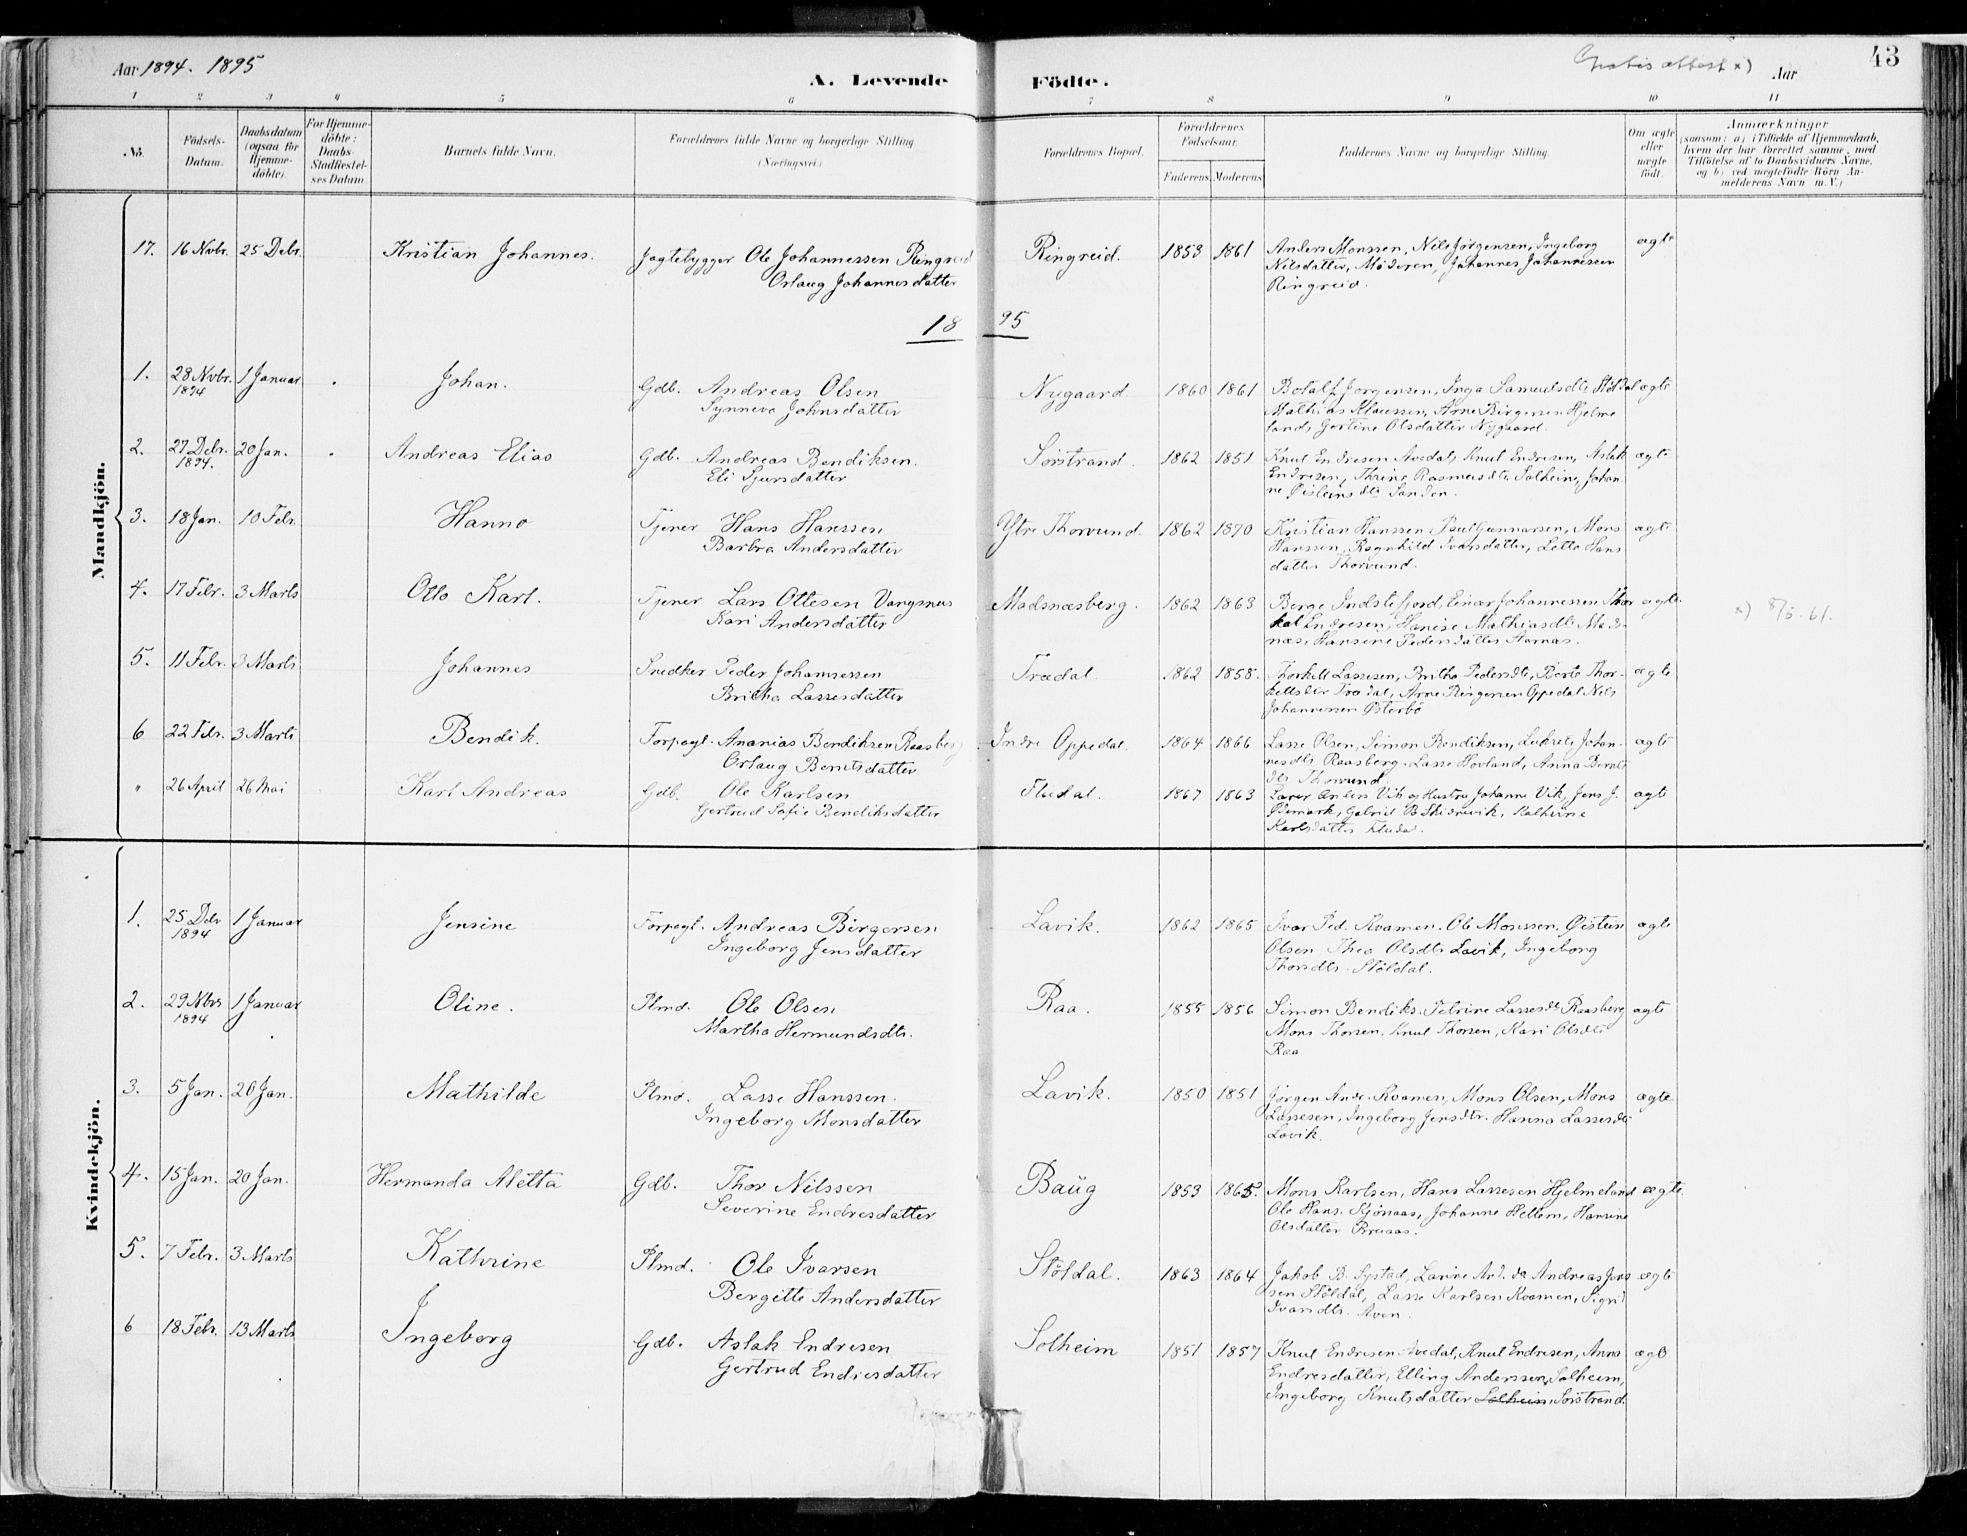 Aar 1894. 1895
A. Levende Födte.
Gratis attest x) Aar
43
1 2 3 4 5 6 7 8 9 10 11
No.
Födsels-
Datum.
Daabsdatum
(ogsaa for
Hjemme-
döbte).
For Hjemme-
döbte:
Daabs-
Stadfæstel-
ses Datum
Barnets fulde Navn.
Forældrenes fulde Navne og borgerlige Stilling
(Næringsvei.)
Forældrenes Bopæl.
Forældrenes
Födselsaar.
Faderens. Moderens.
Faddernes Navne og borgerlige Stilling.
Om ægte
eller
uægte
födt.
Anmærkninger
(saasom: a) i Tilfælde af Hjemmedaab,
hvem der har forrettet samme, med
Tilföielse af to Daabsvidners Navne,
og b) ved uægtefödte Börn An-
melderens Navn m. V.)
Mandkjön.
17. 16 Novbr. 25 Debr. Kristian Johannes. Jagtebygger Ole Johannessen Ringreid
Orlaug Johannesdatter
Ringreid. 1853 1861 Anders Monssen, Nils Jørgensen, Ingeborg
Nilsdatter, Moderen, Johannes Johannessen
Ringreid.
ægte
18 95
1. 28 Novbr.
1894
1 Januar Johan. Gdb. Andreas Olsen
Synneva Johnsdatter
Nygaard 1860 1861 Botalf Jørgensen, Inga Samuelsdtr Støldal
Mathias Klaussen, Arne Birgersen Hjelme
land, Gertine Olsdatter Nygaard.
ægte
2. 27 Debr.
1894.
20 Jan. Andreas Elias Gdb. Andreas Bendiksen.
Eli Sjursdatter
Sørstrand. 1862 1851 Knut Endresen Avedal, Knut Endresen, Aslak
Endresen, Thrine Rasmusdtr Solheim, Johan-
ne Øisteinsdtr Sanden.
ægte
3. 18 Jan. 10 Febr. Hanno Tjener Hans Hanssen
Barbra Andersdatter
Ytre Thorvund. 1862 1870 Kristian Hanssen, Paul Gunnarsen, Mons
Hanssen, Ragnhild Ivarsdatter, Lette Hans
datter Thorvund.
ægte
4. 17 Febr. 3 Marts Otto Karl. Tjener Lars Ottesen Vangsnæs
Kari Andersdatter
Madsnæsberg. 1862 1863 Berge Indstefjord, Einar Johannessen Thor
kel Endresen, Hansine Mathiasdtr Mads-
næs, Hansine Pedersdatter Aarnæs.
ægte x) 8/5-61.
5. 11 Febr. 3 Marts Johannes Snedker Peder Johannessen
Britha Lassesdatter
Trædal. 1862 1858. Thorkell Lassesen, Britha Pedersdtr, Berte Thor-
kellsdtr Trædal, Arne Birgersen Oppedal Nils
Johannessen Østerbø
ægte
6 22 Febr. 3 Marts Bendik. Forpagt. Ananias Bendiksen Raasberg
Orlaug Berntsdatter
Indre Oppedal. 1864 1866 Lasse Olsen, Simon Bendiksen, Lukrets Johan-
nesdtr Raasberg. Lasse Hovland, Anna Bernts
dtr Thorvund.
ægte
" 26 April 26 Mai Karl Andreas Gdb. Ole Karlsen
Gertrud Sofie Bendiksdatter
Fludal. 1867 1863 Lærer Anders Vik og Hustru Johanne Vik, Jens J.
Ødemark, Gabriel B. Skidrevik, Kathrine
Karlsdatter Fludal.
ægte
Kvindekjön.
1. 25 Debr
1894
1 Januar Jensine Forpagt. Andreas Birgersen
Ingeborg Jensdatter
Lavik. 1862 1865 Ivar Ped. Kvamen. Ole Monssen, Øistein
Olsen Thea Olsdtr Lavik, Ingeborg
Thorsdtr. Støldal.
ægte
2. 29 Nbvr
1894
1 Januar Oline. Plmd. Ole Olsen
Martha Hermundsdtr.
Raa. 1855 1856 Simon Bendiks. Petrine Lassesdtr Raasberg
Mons Thorsen. Knut Thorsen, Kari Olsdtr
Raa
ægte
3. 5 Jan. 20 Jan. Mathilde Plmd. Lasse Hanssen.
Ingeborg Monsdatter
Lavik. 1850 1851 Jørgen Andr. Kvamen, Mons Olsen, Mons
Lassesen, Ingeborg Jensdtr. Hanna Lassesdtr
Lavik.
ægte
4. 15 Jan. 20 Jan. Hermanda Aletta Gdb. Thor Nilssen
Severine Endresdatter
Baug 1853 1865 Mons Karlsen, Hans Lassesen Hjelmeland
Ole Hans. Kjønaas, Johanne Hellem, Hansine
Olsdatter
ægte
5. 7 Febr. 3 Marts Kathrine Plmd. Ole Ivarsen
Bergitte Andersdatter
Støldal. 1863 1864 Jakob B. Systad, Larine And. da Andreas Jens
sen Støldal, Lasse Karlsen Kvamen, Sigrid
Ivarsdtr. Aven.
ægte
6 18 Febr. 13 Marts Ingeborg Gdb. Aslak Endresen
Gertrud Endresdatter
Solheim 1851 1857 Knut Endresen Avedal, Knut Endresen, Anna
Endresdatter, Elling Anderssen Solheim,
Ingeborg Knutsdatter Solheim Sørstrand.
ægte